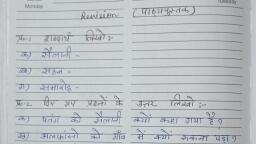 Monday
Tuesday
Revision (पाठ्यपुस्तक)
प्र-1 शब्दार्थ लिखो :-
क) सैलानी -
ख) सहन -
ग) समारोह -
प्र-2 दिए गए प्रश्नों के उत्तर लिखो :-
क) पतंग को सैलानी क्यों कहा गया है?
ख) को गाँव में क्यों रुकना पड़ा?